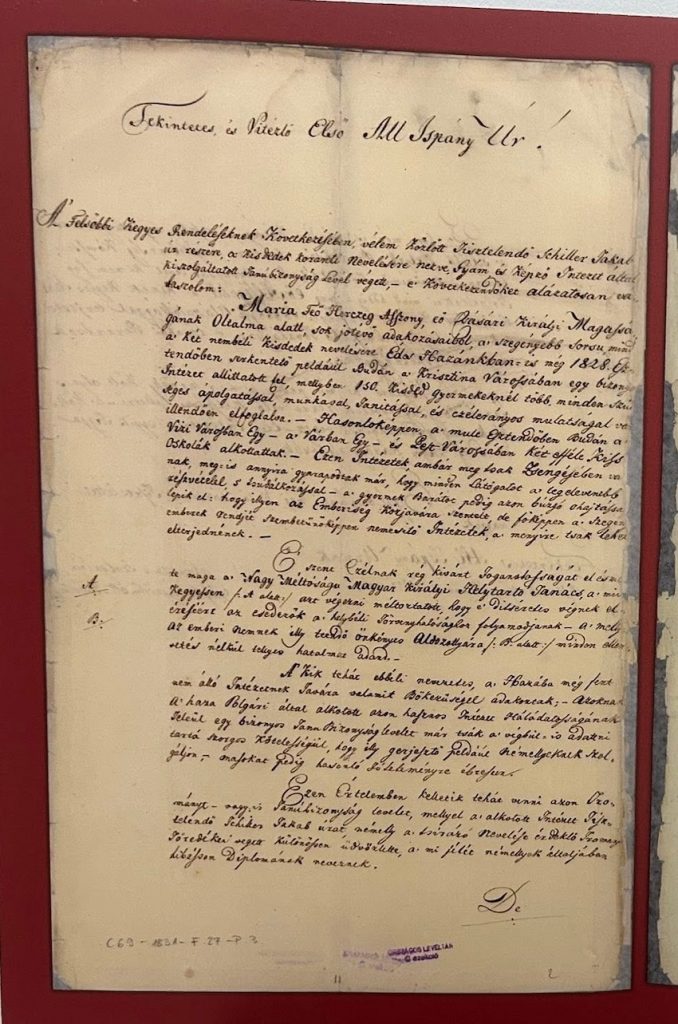 Tekintetes, és Vitézlő Első All Ispány Úr!
A' Felsőbbi Kegyes Rendeléseknek Következésében, vélem közlött Tisztelendő Schiller Jakab
úr részére, a kisdedek koránti Nevelésére nézve, Gyám és Képző Intézet által
kiszolgáltatott Tanúbizonyság Levél végett, – e' következendőket alázatosan
taszolom:
Maria Feő Herczeg Asszony, eő Császári Királyi Magassá-
gának Oltalma alatt, sok jótévő adakozásaiból, a szegényebb Sorsu, mind
a két nembéli Kisdedek nevelésére Édes Hazánkban is még 1828. Esz-
tendőben serkentető például Budán a Krisztina Városában egy bizonyos
Intézet állíttatott fel, mellyben 150. kisded gyermekeknél több, minden Szük-
séges ápolgatással, munkával, Tanítással, és czélerányos mulatsággal
illendően elfoglalva. – Hasonlóképpen, a mult Esztendőben Budán a
Vízi Városban Egy – a Várban Egy – és Pest Városában két efféle Kiss
Oskolák alkottattak. – Ezen Intézetek, ámbár még tsak Zsengésében
nak, még-is annyira gyarapodtak már, hogy minden Látógatót a legelevenebb
részvétellel, s tsudálkozással – a gyermek Barátot pedig azon buzgó óhajtással
lepik el: hogy ilyen az Emberiség közjavára szentelt, de főképpen a Szegény
emberek rendjét szembetünőképpen nemesítő Intézetek, a mennyire tsak lehet
elterjednének. –
A.
B.
Eszent Czélnak rég kívánt foganatosságát
te maga a Nagy Méltóságu Magyar Királyi Helytartó Tanács, a
kegyessen /: A alatt :/ azt végezni méltóztatott, hogy e' ditséretes végnek el-
éréséért az esedezők a helybéli Törvényhatósághoz folyamodjanak – A
Az emberi Nemnek illy tzélú önkényes Áldozattyára /: B. alatt :/ minden ellen-
vetés nélkül tellyes hatalmat adand. –
A' Kik tehát ebbéli nemzetes, a Hazába még fent
nem álló Intézetnek Javára valamit Bőkezüségel adakoztak; – Azoknak
A' haza Polgári által alkotott azon hasznos Intézet Háládatosságának
Jeleül egy bizonyos Tanu Bizonyság levelet már tsák a végbül is adatni
tartá szorgos kötelességül, hogy illy gerjesztő példáúl Némellyeknek Szol-
gáljon, – másokat pedig hasonló Jótéteményre ébreszen.
Ezen Értelemben kelletik tehát venni azon Iro-
mányt – vagy-is Tanúbizonyság levelet, mellyel a alkotott Intézet Tisz-
telendő Schiller Jakab urat, némely a Nevelése érdeklő
Töredékei végett különössen üdvözlötte, a mi jelét némellyek általjában
hibásson Diplomának neveznek.
De
C 69 - 1831 - F. 27 - P 3
ORSZÁGOS LEVÉLTÁR
11
2